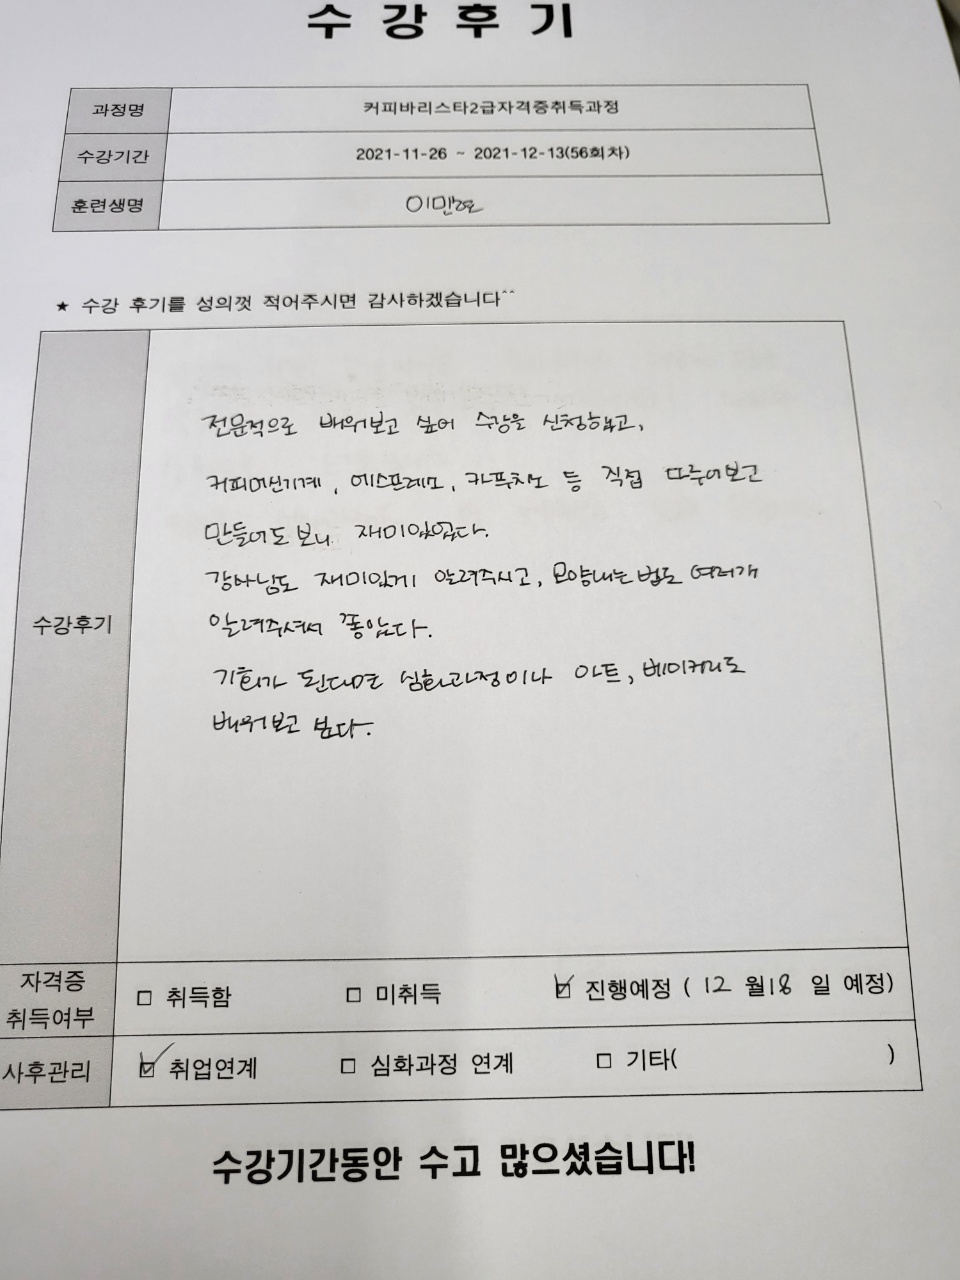 수강후기
과정명 커피바리스타2급자격증취득과정
수강기간 2021-11-26 ~ 2021-12-13(56회차)
훈련생명 이민현
★ 수강 후기를 성의껏 적어주시면 감사하겠습니다^^
수강후기
전문적으로 배워보고 싶어 수강을 신청하고,
커피머신기계, 에스프레소, 카푸치노 등 직접 다루어보고
만들어도 보니 재미있었다.
강사님도 재미있게 알려주시고, 모양내는 법도 여러개
알려주셔서 좋았다.
기회가 된다면 심화과정이나 아트, 베이커리도
배워보고 싶다.
자격증 취득여부 □ 취득함 □ 미취득 ☑ 진행예정 ( 12 월 18 일 예정)
사후관리 ☑ 취업연계 □ 심화과정 연계 □ 기타( )
수강기간동안 수고 많으셨습니다!